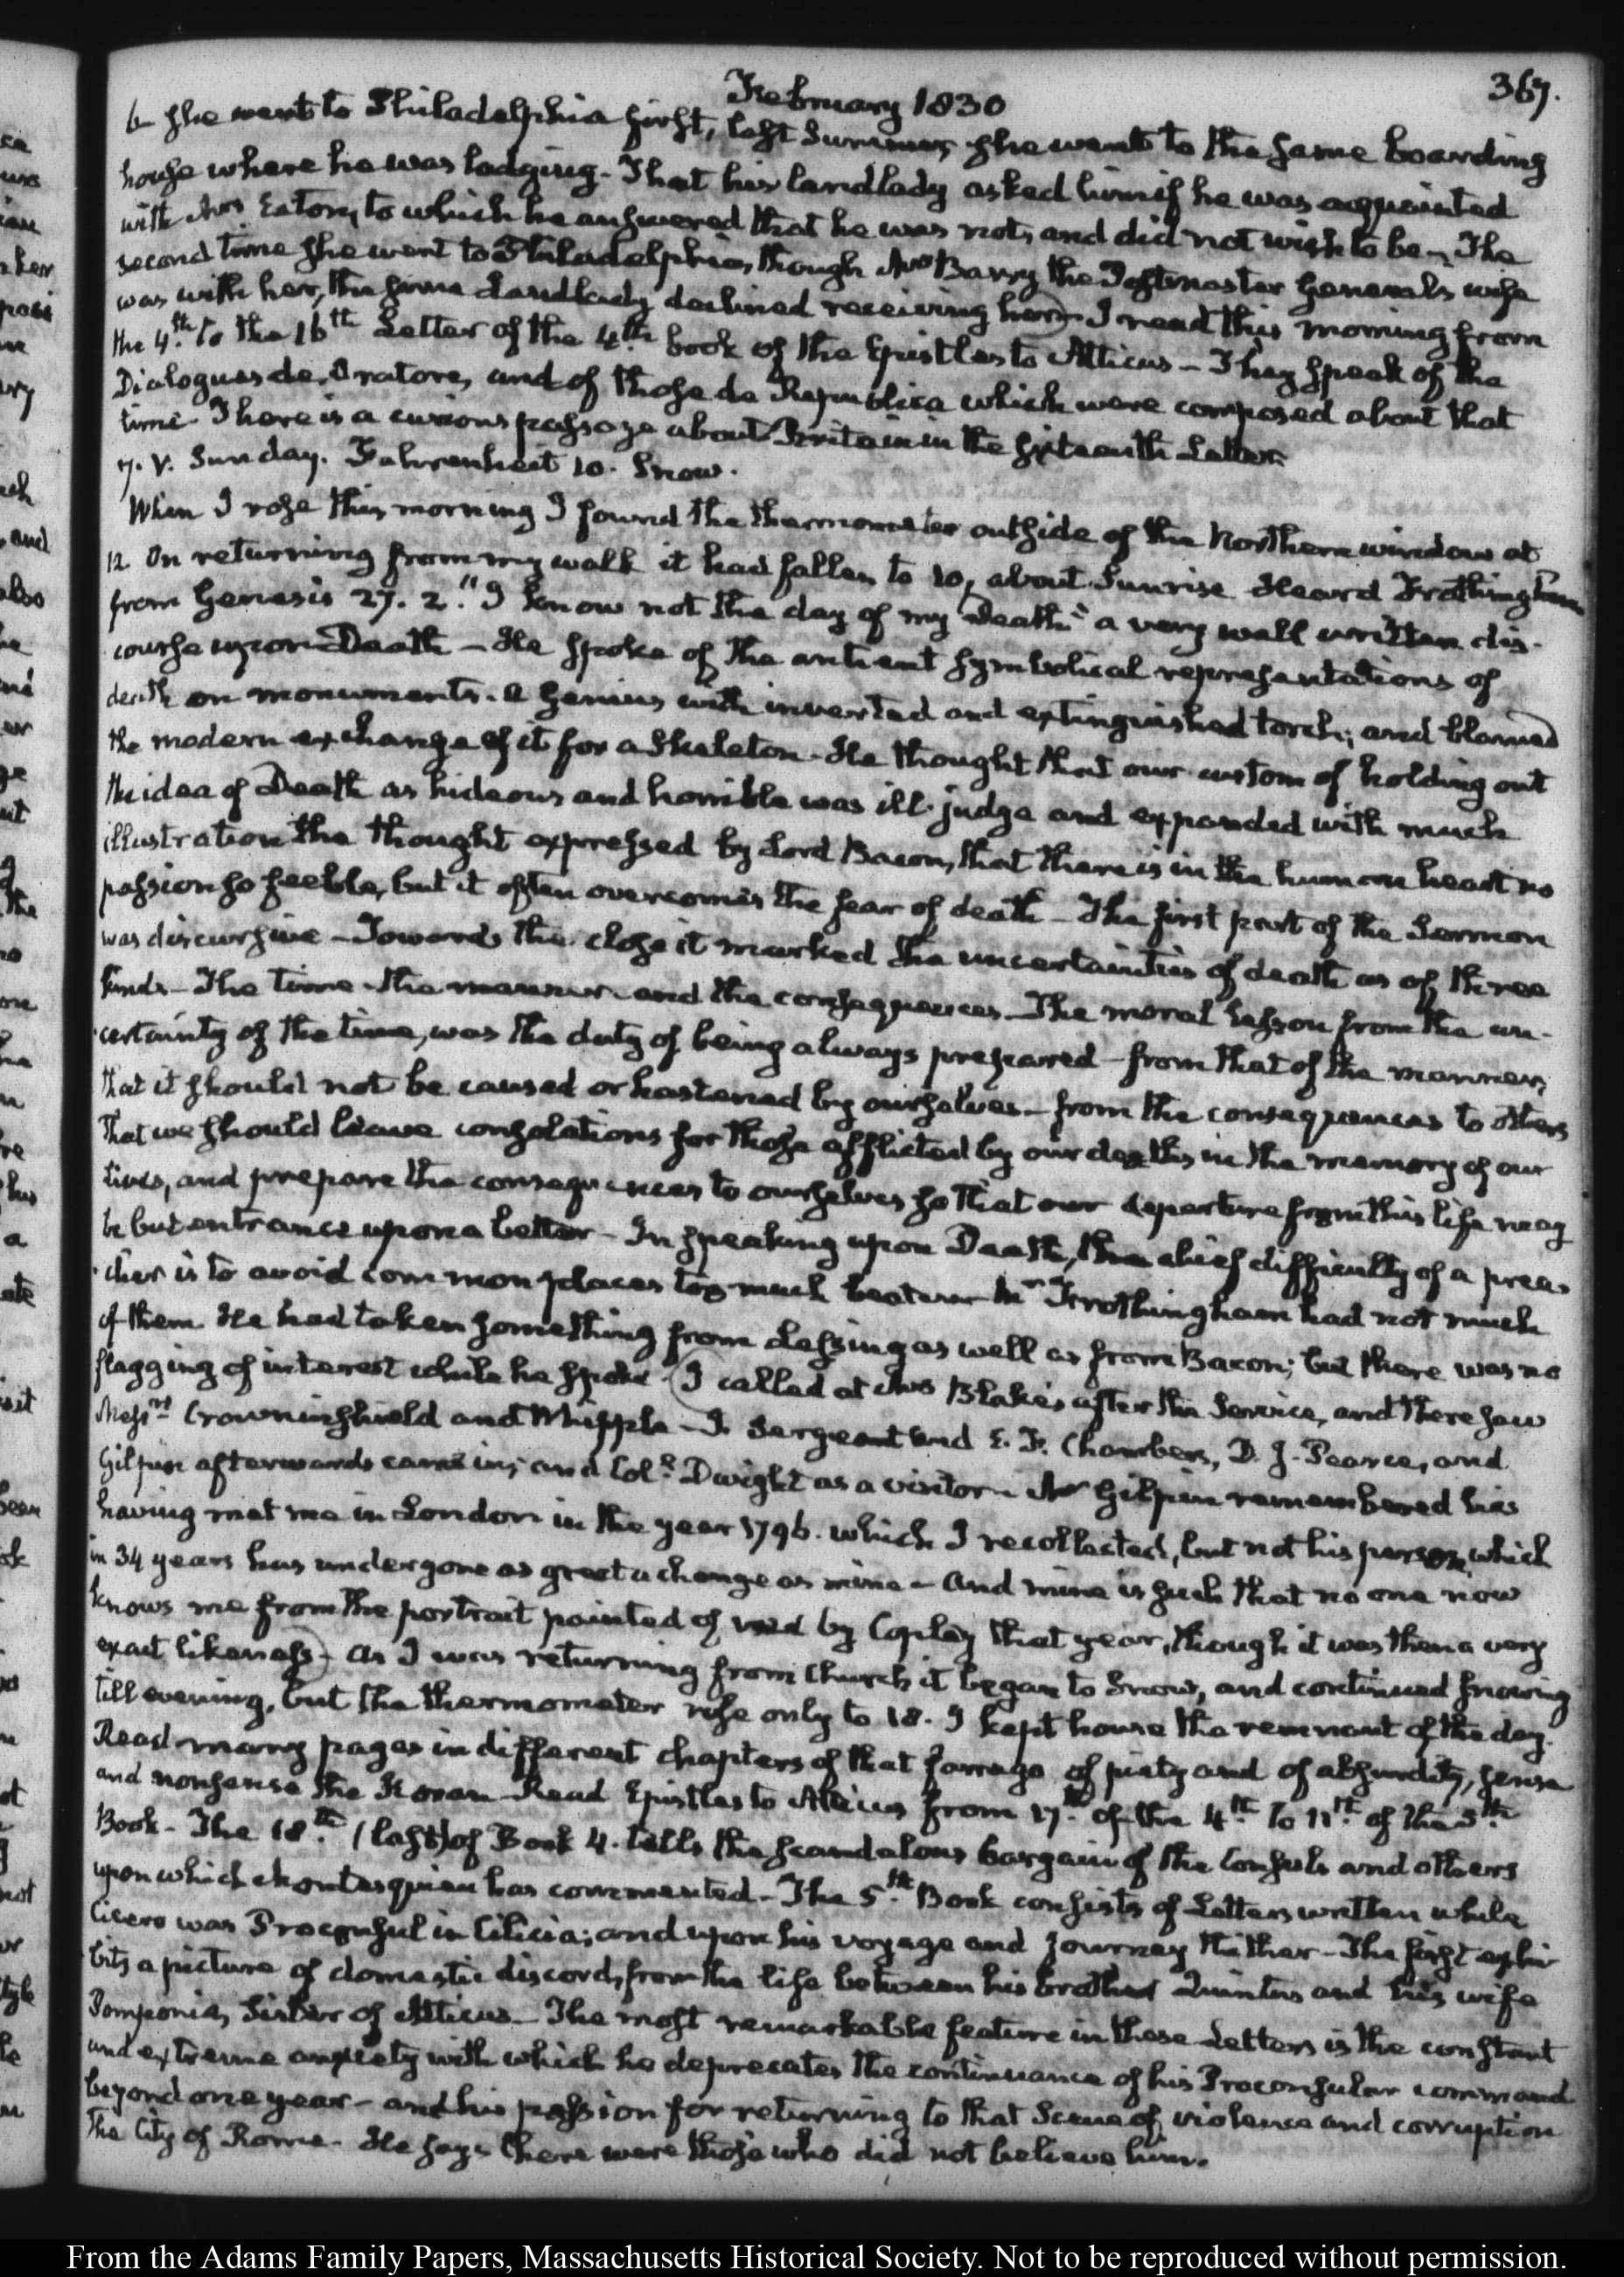 February 1830
367.
6 she went to Philadelphia first, last Summer, she went to the same boarding
house where he was lodging. That his landlady asked him if he was acquainted
with Mrs Eaton, to which he answered that he was not, and did not wish to be. The
second time she went to Philadelphia, though Mrs Barry the Postmaster General's wife
was with her, the same Landlady declined receiving her. I read this morning from
the 4th to the 16th Letter of the 4th book of the Epistles to Atticus — They speak of the
Dialogues de Oratore, and of those de Republica which were composed about that
time. There is a curious passage about Britain in the sixteenth Letter.
7. V. Sunday. Fahrenheit 10. Snow.
When I rose this morning I found the thermometer outside of the Northern window at
12 On returning from my walk it had fallen to 10, about Sunrise. Heard Frothingham
from Genesis 27. 2. "I know not the day of my death" a very well written dis-
course upon Death — He spoke of the antient symbolical representations of
death on monuments. A Genius with inverted and extinguished torch; and blamed
the modern exchange of it for a Skeleton. He thought that our custom of holding out
the idea of Death as hideous and horrible was ill-judge and expanded with much
illustration the thought expressed by Lord Bacon, that there is in the human heart no
passion so feeble, but it often overcomes the fear of death — The first part of the Sermon
was discursive — Towards the close it marked the uncertainties of death as of three
kinds — The time — the manner and the consequences — The moral lesson from the un-
certainty of the time, was the duty of being always prepared — from that of the manner,
that it should not be caused or hastened by ourselves — from the consequences to others
that we should leave consolations for those afflicted by our deaths in the memory of our
lives, and prepare the consequences to ourselves so that our departure from this life may
be but entrance upon a better — In speaking upon Death, the chief difficulty of a prea-
cher is to avoid common places too much beaten Mr Frothingham had not much
of them. He had taken something from Lessing as well as from Bacon; but there was no
flagging of interest while he spoke. I called at Mrs Blake's after the Service, and there saw
Messrs Crowninshield and Whipple — J. Sergeant and E. F. Chambers, D. J. Pearce, and
Gilpin afterwards came in; and Coll Dwight as a visitor. Mr Gilpin remembered his
having met me in London in the year 1796. which I recollected, but not his person, which
in 34 years has undergone as great a change as mine — and mine is such that no one now
knows me from the portrait painted of me by Copley that year, though it was then a very
exact likeness — As I was returning from Church it began to Snow, and continued snowing
till evening, but the thermometer rose only to 18. I kept house the remnant of the day.
Read many pages in different chapters of that farrago of piety and of absurdity, sense
and nonsense the Koran — Read Epistles to Atticus from 17th of the 4th to 11th of the 5th
Book — The 18th (last) of Book 4. tells the scandalous bargain of the Consuls and others
upon which Montesquieu has commented — The 5th Book consists of Letters written while
Cicero was Proconsul in Cilicia; and upon his voyage and Journey thither — The first exhi-
bits a picture of domestic discord, from the life between his brother Quintus and his wife
Pomponia, Sister of Atticus — The most remarkable feature in these Letters is the constant
and extreme anxiety with which he deprecates the continuance of his Proconsular command
beyond one year — and his passion for returning to that Scene of violence and corruption
the City of Rome. He says there were those who did not believe him.
From the Adams Family Papers, Massachusetts Historical Society. Not to be reproduced without permission.